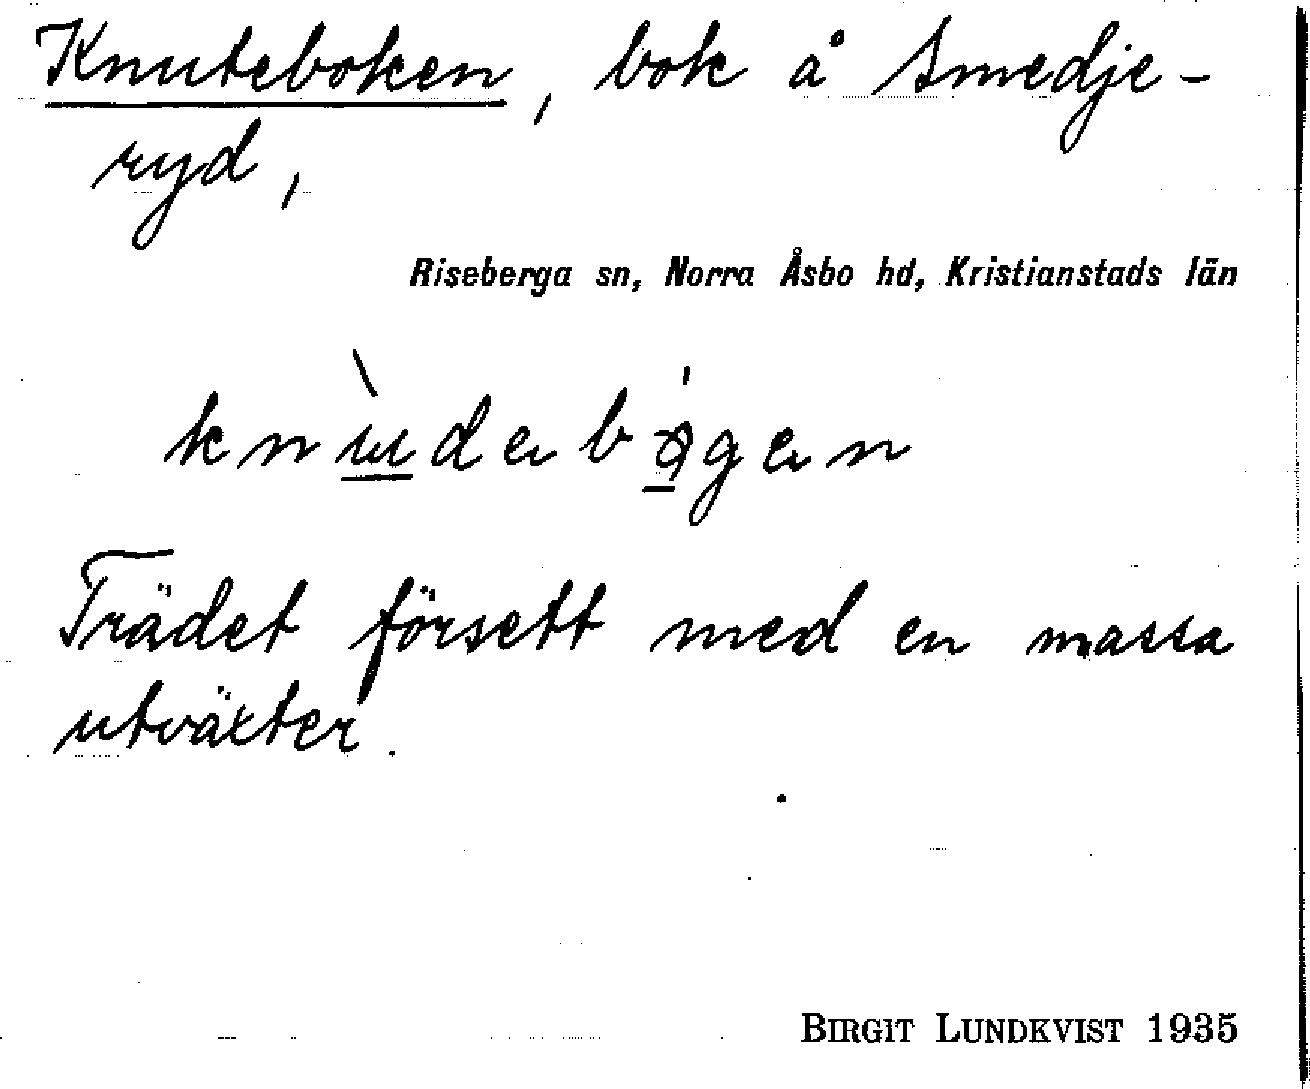 Knuteboken, bok å Smedje-
ryd,
Riseberga sn, Norra Åsbo hd, Kristianstads län
Trädet försett med en massa
utväxter.
BIRGIT LUNDKVIST 1935